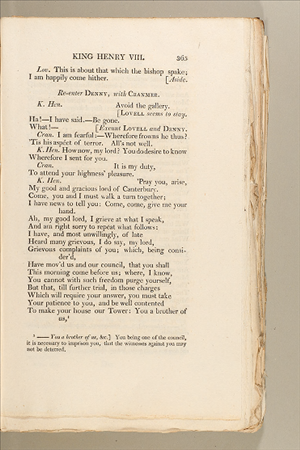 KING HENRY VIII. 365
Lov. This is about that which the bishop spake;
I am happily come hither. [Aside.
Re-enter DENNY, with CRANMER.
K. Hen. Avoid the gallery.
[LOVELL seems to stay.
Ha!—I have said.—Be gone.
What!— [Exeunt LOVELL and DENNY.
Cran. I am fearful:—Wherefore frowns he thus?
'Tis his aspéct of terror. All's not well.
K. Hen. How now, my lord? You do desire to know
Wherefore I sent for you.
Cran. It is my duty,
To attend your highness' pleasure.
K. Hen. 'Pray you, arise,
My good and gracious lord of Canterbury.
Come, you and I must walk a turn together;
I have news to tell you: Come, come, give me your
hand.
Ah, my good lord, I grieve at what I speak,
And am right sorry to repeat what follows:
I have, and most unwillingly, of late
Heard many grievous, I do say, my lord,
Grievous complaints of you; which, being consi-
der'd,
Have mov'd us and our council, that you shall
This morning come before us; where, I know,
You cannot with such freedom purge yourself,
But that, till further trial, in those charges
Which will require your answer, you must take
Your patience to you, and be well contented
To make your house our Tower: You a brother of
us,¹
¹ —— You a brother of us, &c.] You being one of the council,
it is necessary to imprison you, that the witnesses against you may
not be deterred.